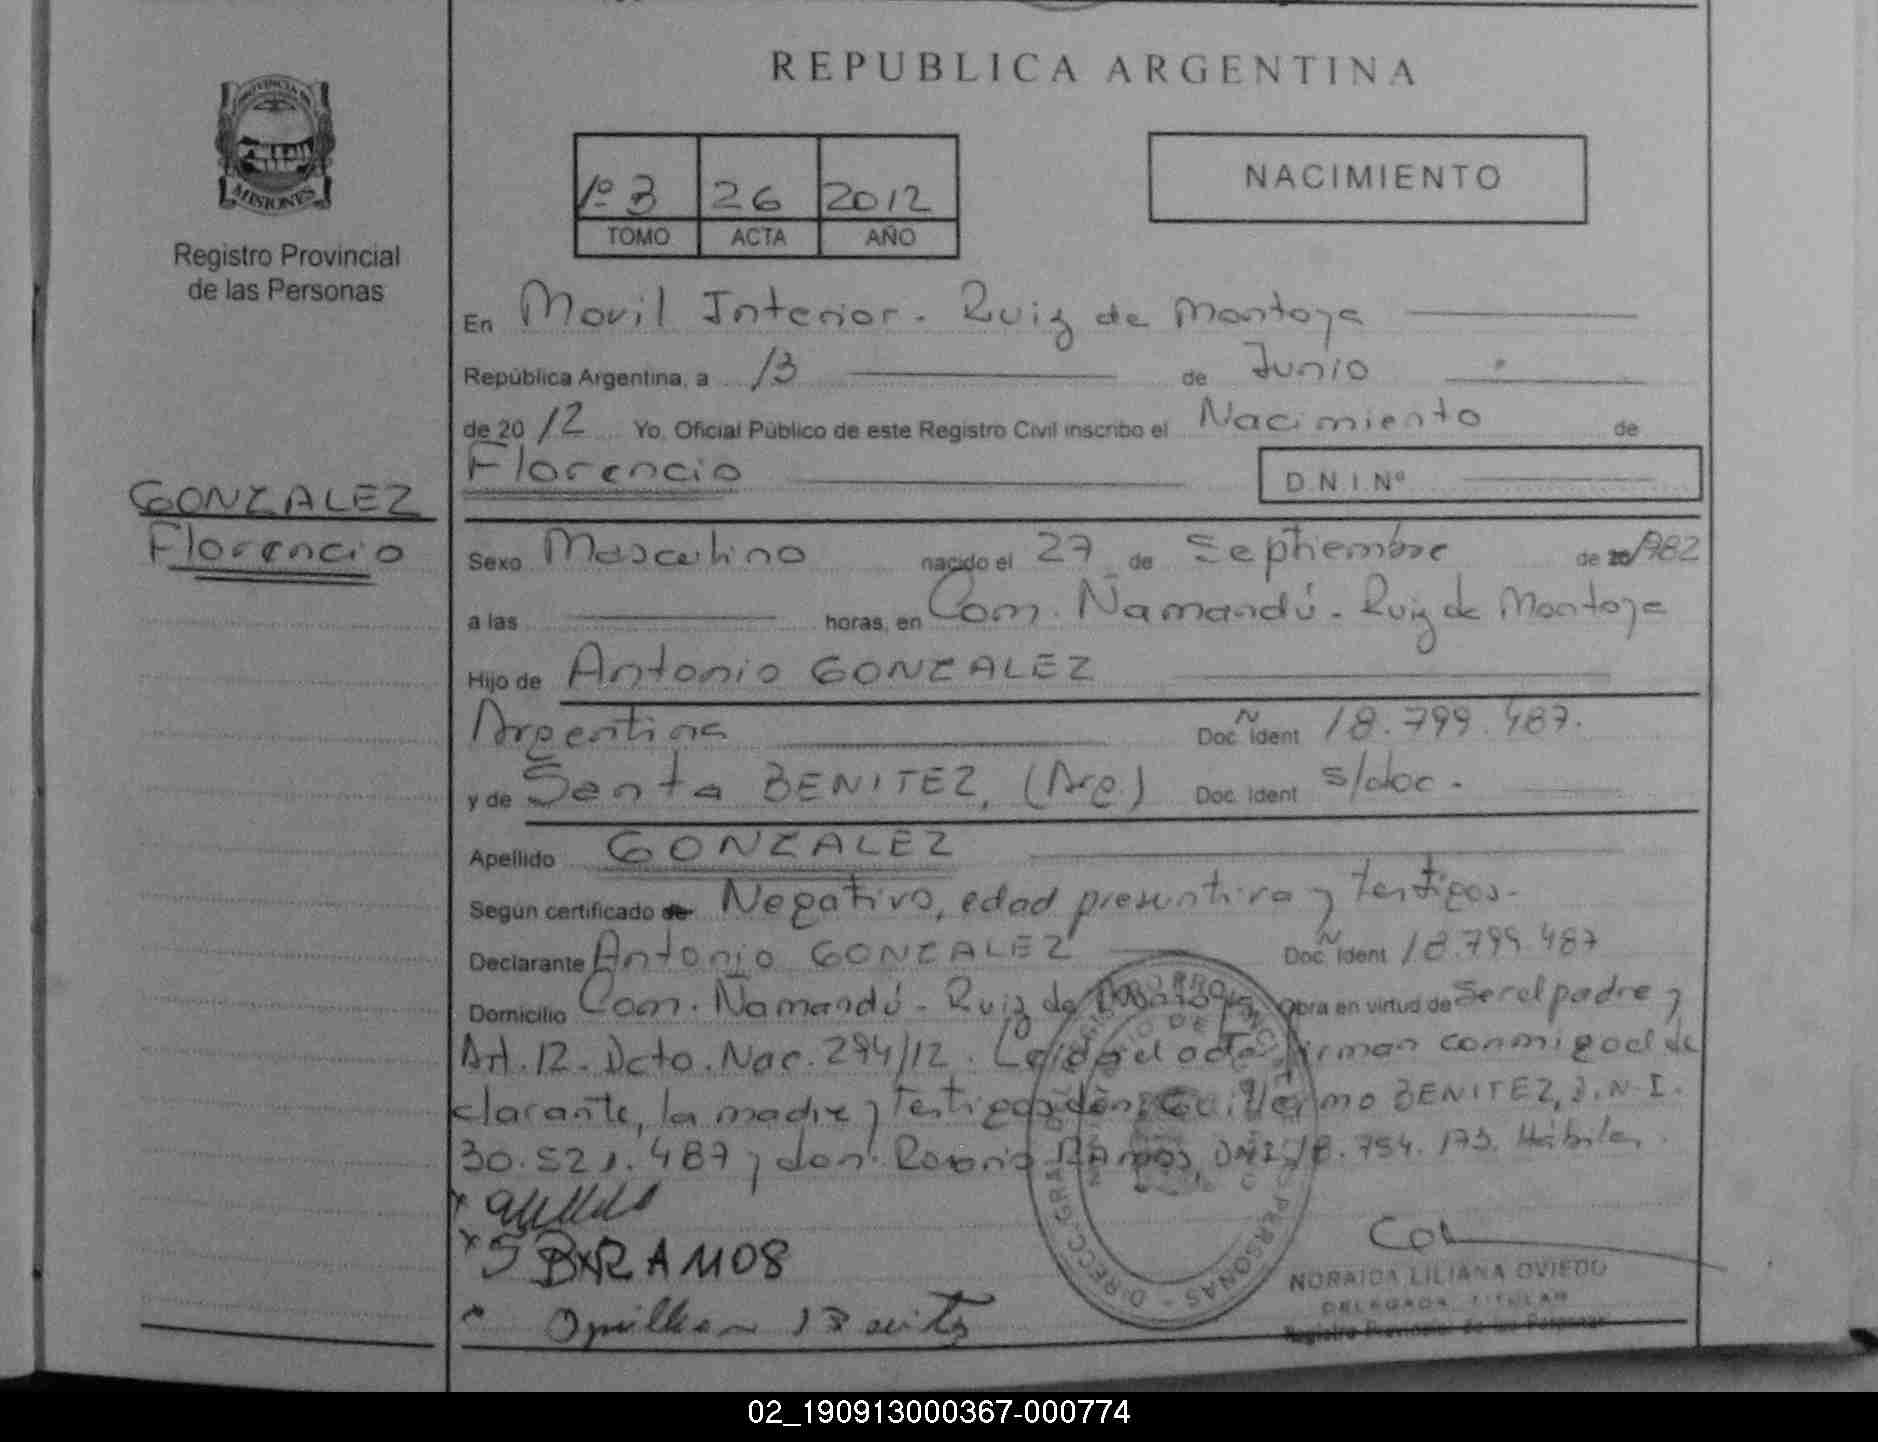 REPUBLICA ARGENTINA
PROVINCIA DE
MISIONES
Registro Provincial
de las Personas
1º 3 26 2012
TOMO ACTA AÑO
NACIMIENTO
En Movil Interior. Ruiz de Montoya
República Argentina, a 13 de Junio
de 2012 Yo, Oficial Público de este Registro Civil inscribo el Nacimiento de
Florencio D.N.I.Nº
GONZALEZ
Florencio
Sexo Masculino nacido el 27 de Septiembre de 1982
a las horas, en Com. Ñamandú - Ruiz de Montoya
Hijo de Antonio GONZALEZ
Argentina Doc. Ident 18.799.487.
y de Santa BENITEZ, (Arg.) Doc. Ident s/doc.
Apellido GONZALEZ
Según certificado de Negativo, edad presuntiva y testigos.
Declarante Antonio GONZALEZ Doc. Ident 18.799.487
Domicilio Com. Ñamandú - Ruiz de Montoya Obra en virtud de Ser el padre y
Art. 12. Dcto. Nac. 294/12. Leida el acta firman conmigo el de
clarante, la madre y testigos don: Guillermo BENITEZ, D.N.I.
30.521.487 y don. Rosario RAMOS, DNI 18.754.173. Hábiles.
RAMOS
NORAIDA LILIANA OVIEDO
DELEGADA TITULAR
Registro Provincial de las Personas
02_190913000367-000774